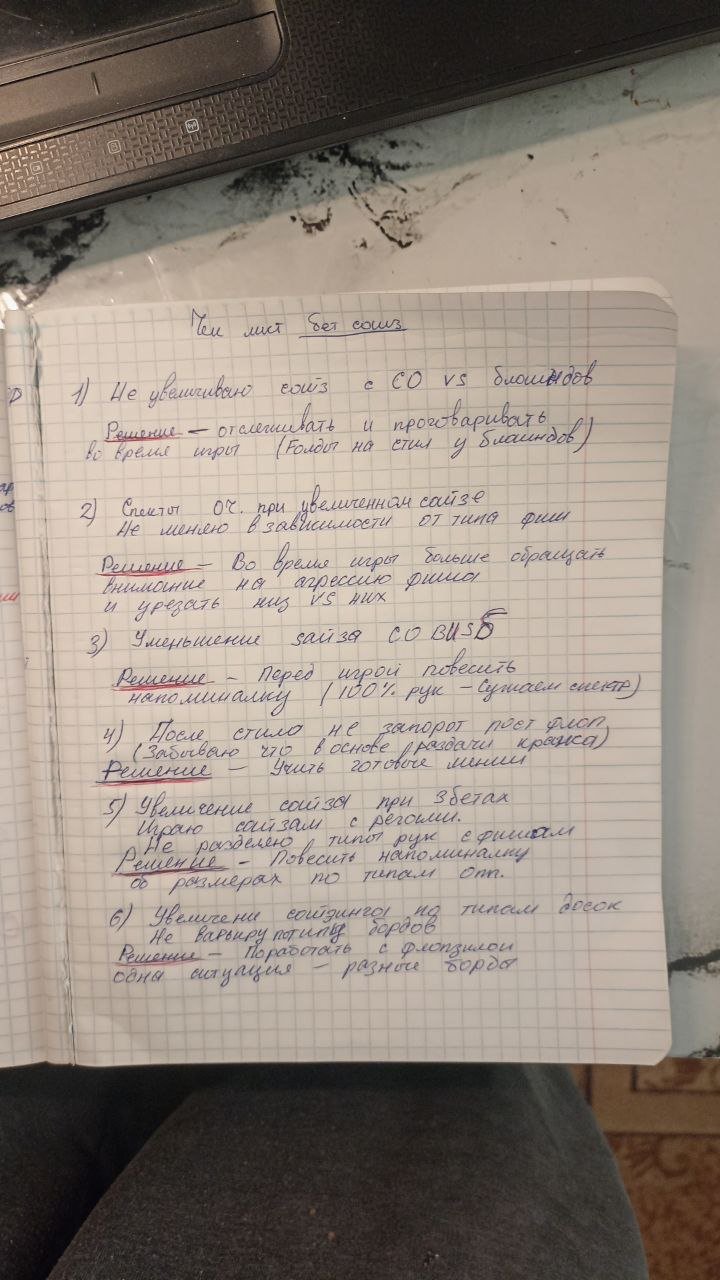 Чек лист бет сайз
1) Не увеличиваю сайз с CO vs блайндов
Решение – отслеживать и проговаривать
во время игры (Fолды на стил у блаиндов)
2) Спектр оч. при увеличенном сайзе
Не меняю в зависимости от типа фиш
Решение – Во время игры больше обращать
внимание на агрессию фиша
и урезать низ vs них
3) Уменьшение сайза CO BU SB
Решение – Перед игрой повесить
напоминалку (100% рук – Сужаем спектр)
4) После стила не запорот пост флоп
(Забываю что в основе раздачи кража)
Решение – Учить готовые линии
5) Увеличение сайза при 3бетах
Играю сайзам с регоми.
Не разделяю типы рук с фишом
Решение – Повесить напоминалку
об размерах по типам опп.
6) Увеличени сайзинга по типам досок
Не варьиру типы бордов
Решение – Поработать с флопзилой
одна ситуация – разные борды